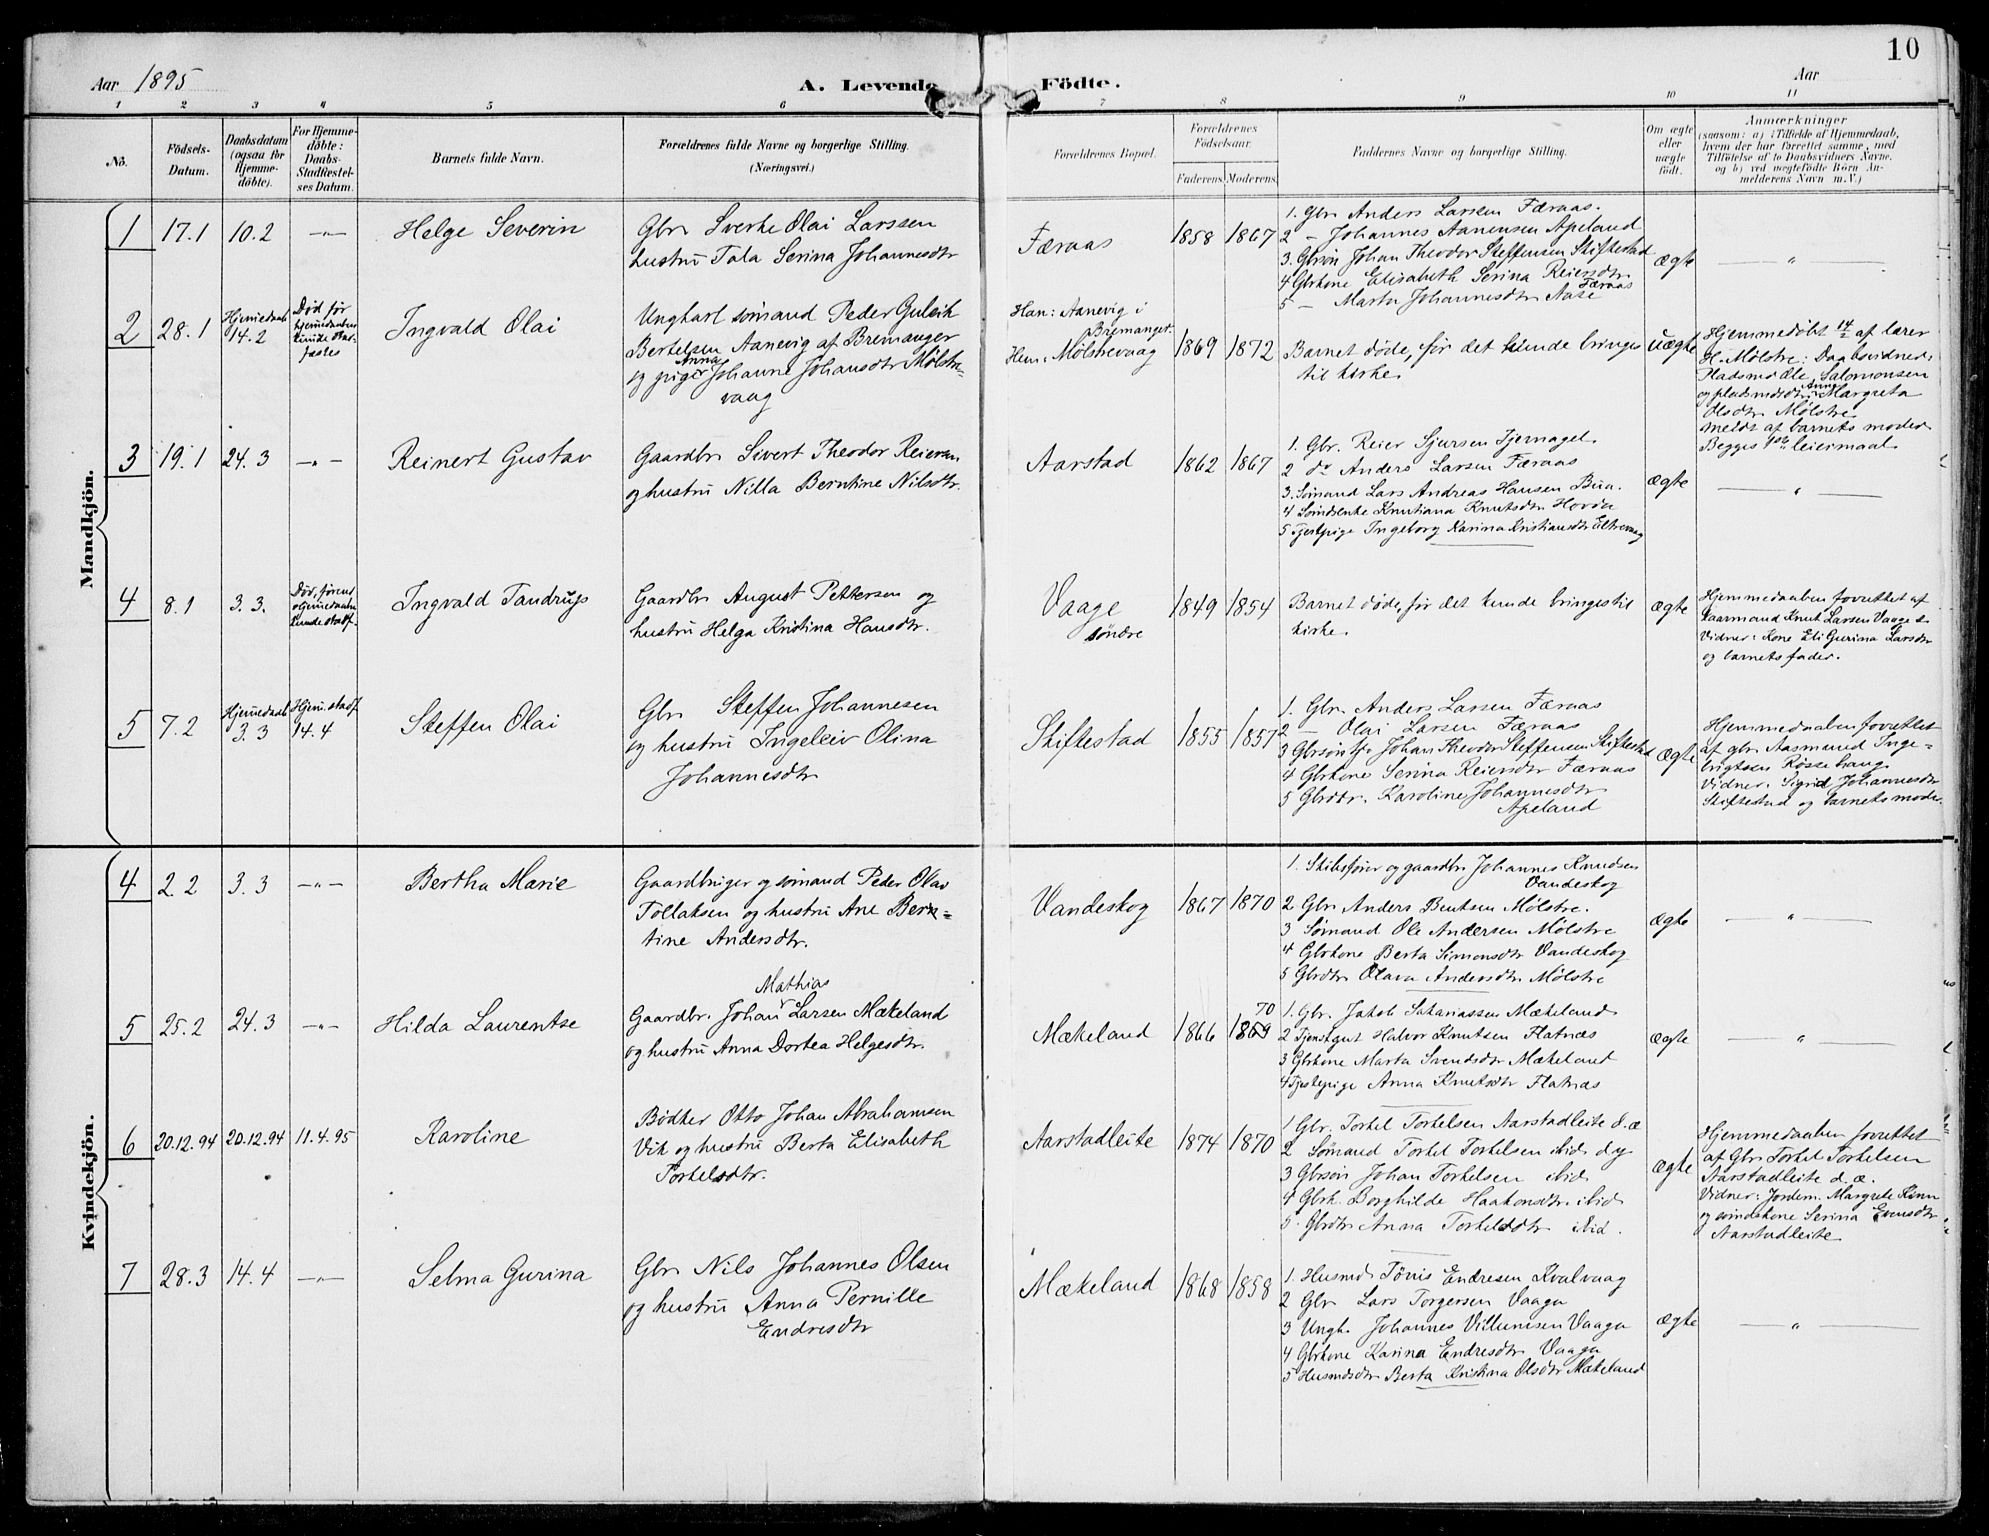 Aar 1895
A. Levende Födte.
Aar
10
1 2 3 4 5 6 7 8 9 10 11
No.
Födsels-
Datum.
Daabsdatum
(ogsaa for
Hjemme-
döbte).
For Hjemme-
döbte:
Daabs-
Stadfæstel-
ses Datum.
Barnets fulde Navn.
Forældrenes fulde Navne og borgerlige Stilling.
(Næringsvei.)
Forældrenes Bopæl.
Forældrenes
Födselsaar.
Faderens. Moderens.
Faddernes Navne og borgerlige Stilling.
Om ægte
eller
uægte
født.
Anmærkninger
(saasom: a) i Tilfælde af Hjemmedaab,
hvem der har forrettet samme, med
Tilföielse af to Daabsvidners Navne,
og b) ved uægtefödte Börn An-
melderens Navn m. V.)
Mandkjön.
1 17.1 10.2 —"— Helge Severin
Gbr Sverke Olai Larssen
hustru Tala Serina Johannesdtr
Færaas
1858 1867
1. Gbr Anders Larsen Færaas.
2 — Johannes Aanensen Apeland
3. Gbrsön Johan Theodor Steffensen Skiftestad
4 Gbrkone Elisabeth Serina Reiersdtr
Færaas
5 — Marta Johannesdtr Aase
ægte
—"—
2 28.1
Hjemedaab
14.2
Død før
hjemedaaben
kunde stad-
fæstes
Ingvald Olai
Ungkarl sømand Peder Guleik
Bertelsen Aanevig af Bremanger
og pige Anna Johanne Johansdtr Mølstre-
vaag
Han: Aanevig i
Bremanger.
Hun: Mølstrevaag
1869 1872
Barnet døde, før det kunde bringes
til kirke.
uægte
Hjemmedøbt 14/2 af lærer
H. Mølstre: Daabsvidner:
Pladsmd Æle Salomonsen
og pladsmdsdtr Anna Margreta
Olsdtr Mølstre
meldt af barnets moder
Begges 1ste leiermaal
3 19.1 24.3 —"— Reinert Gustav
Gaardbr Sivert Theodor Reiersen
og hustru Nilla Berntine Nilsdtr.
Aarstad
1862 1867
1. Gbr. Reier Sjursen Tjernagel
2 do Anders Larsen Færaas
3. Sømand Lars Andreas Hansen Bua.
4 Sømdenke Knutiana Knutsdtr Hovda
5 Tjestpige Ingeborg Karina Kristiansdtr Eltrevaag
ægte
—"—
4 8.1 3.3.
Død, førend
hjemedaaben
kunde stadf.
Ingvald Tandrup
Gaardbr August Pettersen og
hustru Helga Kristina Hansdtr.
Vaage
søndre
1849 1854
Barnet døde, før det kunde bringes til
kirke.
ægte
Hjemmedaaben forrettet af
Kaarmand Knut Larsen Vaage s.
Vidner: Kone Eli Gurina Larsdtr
og barnets fader.
5 7.2
Hjemedaab
3.3
Hjem. stadf.
14.4
Steffen Olai
Gbr Steffen Johannesen
og hustru Ingeleiv Olina
Johannesdtr
Skiftestad
1855 1857
1. Gbr. Anders Larsen Færaas
2 — Olai Larsen Færaas
3 Gbrsön Johan Theodor Steffensen Skiftestad
4 Gbrkone Serina Reiersdtr Færaas
5 Gbrdtr. Karoline Johannesdtr
Apeland
ægte
Hjemmedaaben forrettet
af gbr Aasmund Inge-
brigtsen Røssehaug
Vidner: Sigrid Johannesdtr
Skiftestad og barnets moder.
Kvindekjön.
4 2.2 3.3 —"— Bertha Marie
Gaardbruger og sømand Peder Olav
Tollaksen og hustru Ane Bern-
tine Andersdtr.
Vandeskog
1867 1870
1. Skibsfører og gaardbr Johannes Knudsen
Vandeskog
2 Gbr Anders Bentsen Mølstre.
3 Sømand Ole Andersen Mølstre
4 Gbrkone Berta Simonsdtr Vandeskog
5 Gbrdtr Olava Andersdtr Mølstre
ægte
—"—
5 25.2 24.3 —"— Hilda Laurentse
Mathias
Gaardbr. Johan Larsen Mækeland
og hustru Anna Dortea Helgesdtr.
Mækeland
1866 1869 70
1. Gbr. Jakob Sakariassen Mækeland
2 Tjenstgut Halvor Knutsen Flatnæs
3 Gbrkone Marta Svendsdtr Mækeland
4 Tjestepige Anna Knutsdtr Flatnæs
ægte
—"—
6 20.12.94 20.12.94 11.4.95 Karoline
Bødker Otto Johan Abrahamsen
Vik og hustru Berta Elisabeth
Torkelsdtr.
Aarstadleite
1874 1870
1 Gbr. Torkel Torkelsen Aarstadleite d.æ
2 Sømand Torkel Torkelsen ibid d.y.
3 Gbrsön Johan Torkelsen ibid
4 Gbrk. Borghilde Haakonsdtr. ibid
5. Gbrdtr Anna Torkelsdtr ibid.
ægte
Hjemmedaaben forrettet
af Gbr Torkel Torkelsen
Aarstadleite d.æ.
Vidner: Jordem. Margrete Kinn
og Serina Evensdtr
Aarstadleite
7 28.3 14.4 —"— Selma Gurina
Gbr Nils Johannes Olsen
og hustru Anna Pernille
Endresdtr
Mækeland
1868 1858
1. Husmd. Tønis Endresen Kvalvaag
2 Gbr Lars Torgersen Vaaga
3 Ungk. Johannes Villumsen Vaaga
4 Gbrkone Karina Endresdtr Vaaga
5 Husmdsdtr Berta Kristina Olsdtr Mækeland
ægte
—"—